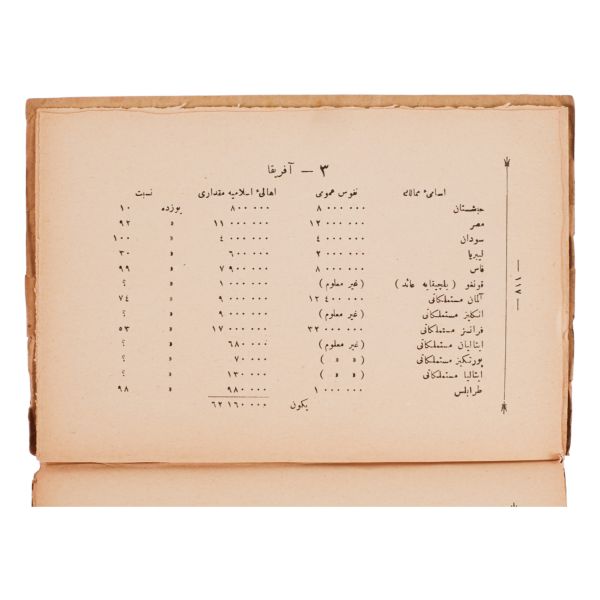 ٣ — آفريقا
اسامیٔ ممالك نفوس عمومی اهالیٔ اسلاميه مقداری نسبت
حبشستان ٨ ٠٠٠ ٠٠٠ ٨٠٠ ٠٠٠ يوزده ١٠
مصر ١٢ ٠٠٠ ٠٠٠ ١١ ٠٠٠ ٠٠٠ » ٩٢
سودان ٤ ٠٠٠ ٠٠٠ ٤ ٠٠٠ ٠٠٠ » ١٠٠
ليبريا ٢ ٠٠٠ ٠٠٠ ٦٠٠ ٠٠٠ » ٣٠
فاس ٨ ٠٠٠ ٠٠٠ ٧ ٩٠٠ ٠٠٠ » ٩٩
قونغو ( بلجيقايه عائد ) (غير معلوم) ١ ٠٠٠ ٠٠٠ » ؟
آلمان مستملكاتی ١٢ ٤٠٠ ٠٠٠ ٩ ٠٠٠ ٠٠٠ » ٧٤
انكليز مستملكاتی (غير معلوم) ٩ ٠٠٠ ٠٠٠ » ؟
فرانسز مستملكاتی ٣٢ ٠٠٠ ٠٠٠ ١٧ ٠٠٠ ٠٠٠ » ٥٣
ايتاليان مستملكاتی (غير معلوم) ٦٨٠ ٠٠٠ » ؟
پورتكيز مستملكاتی ( » » ) ٧٠ ٠٠٠ » ؟
ايتاليا مستملكاتی ( » » ) ١٣٠ ٠٠٠ » ؟
طرابلس ١ ٠٠٠ ٠٠٠ ٩٨٠ ٠٠٠ » ٩٨
يكون ٦٢ ١٦٠ ٠٠٠
— ١١٧ —